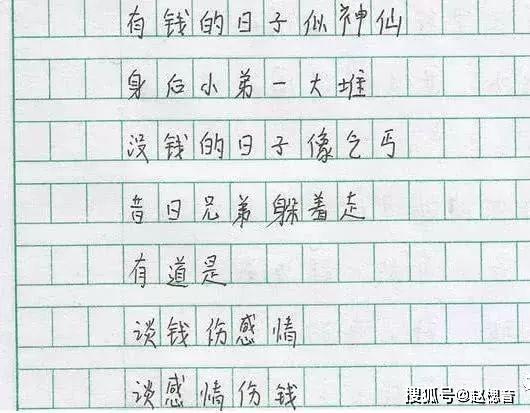 有钱的日子似神仙
身后小弟一大堆
没钱的日子像乞丐
昔日兄弟躲着走
有道是
谈钱伤感情
谈感情伤钱
搜狐号@赵楒音